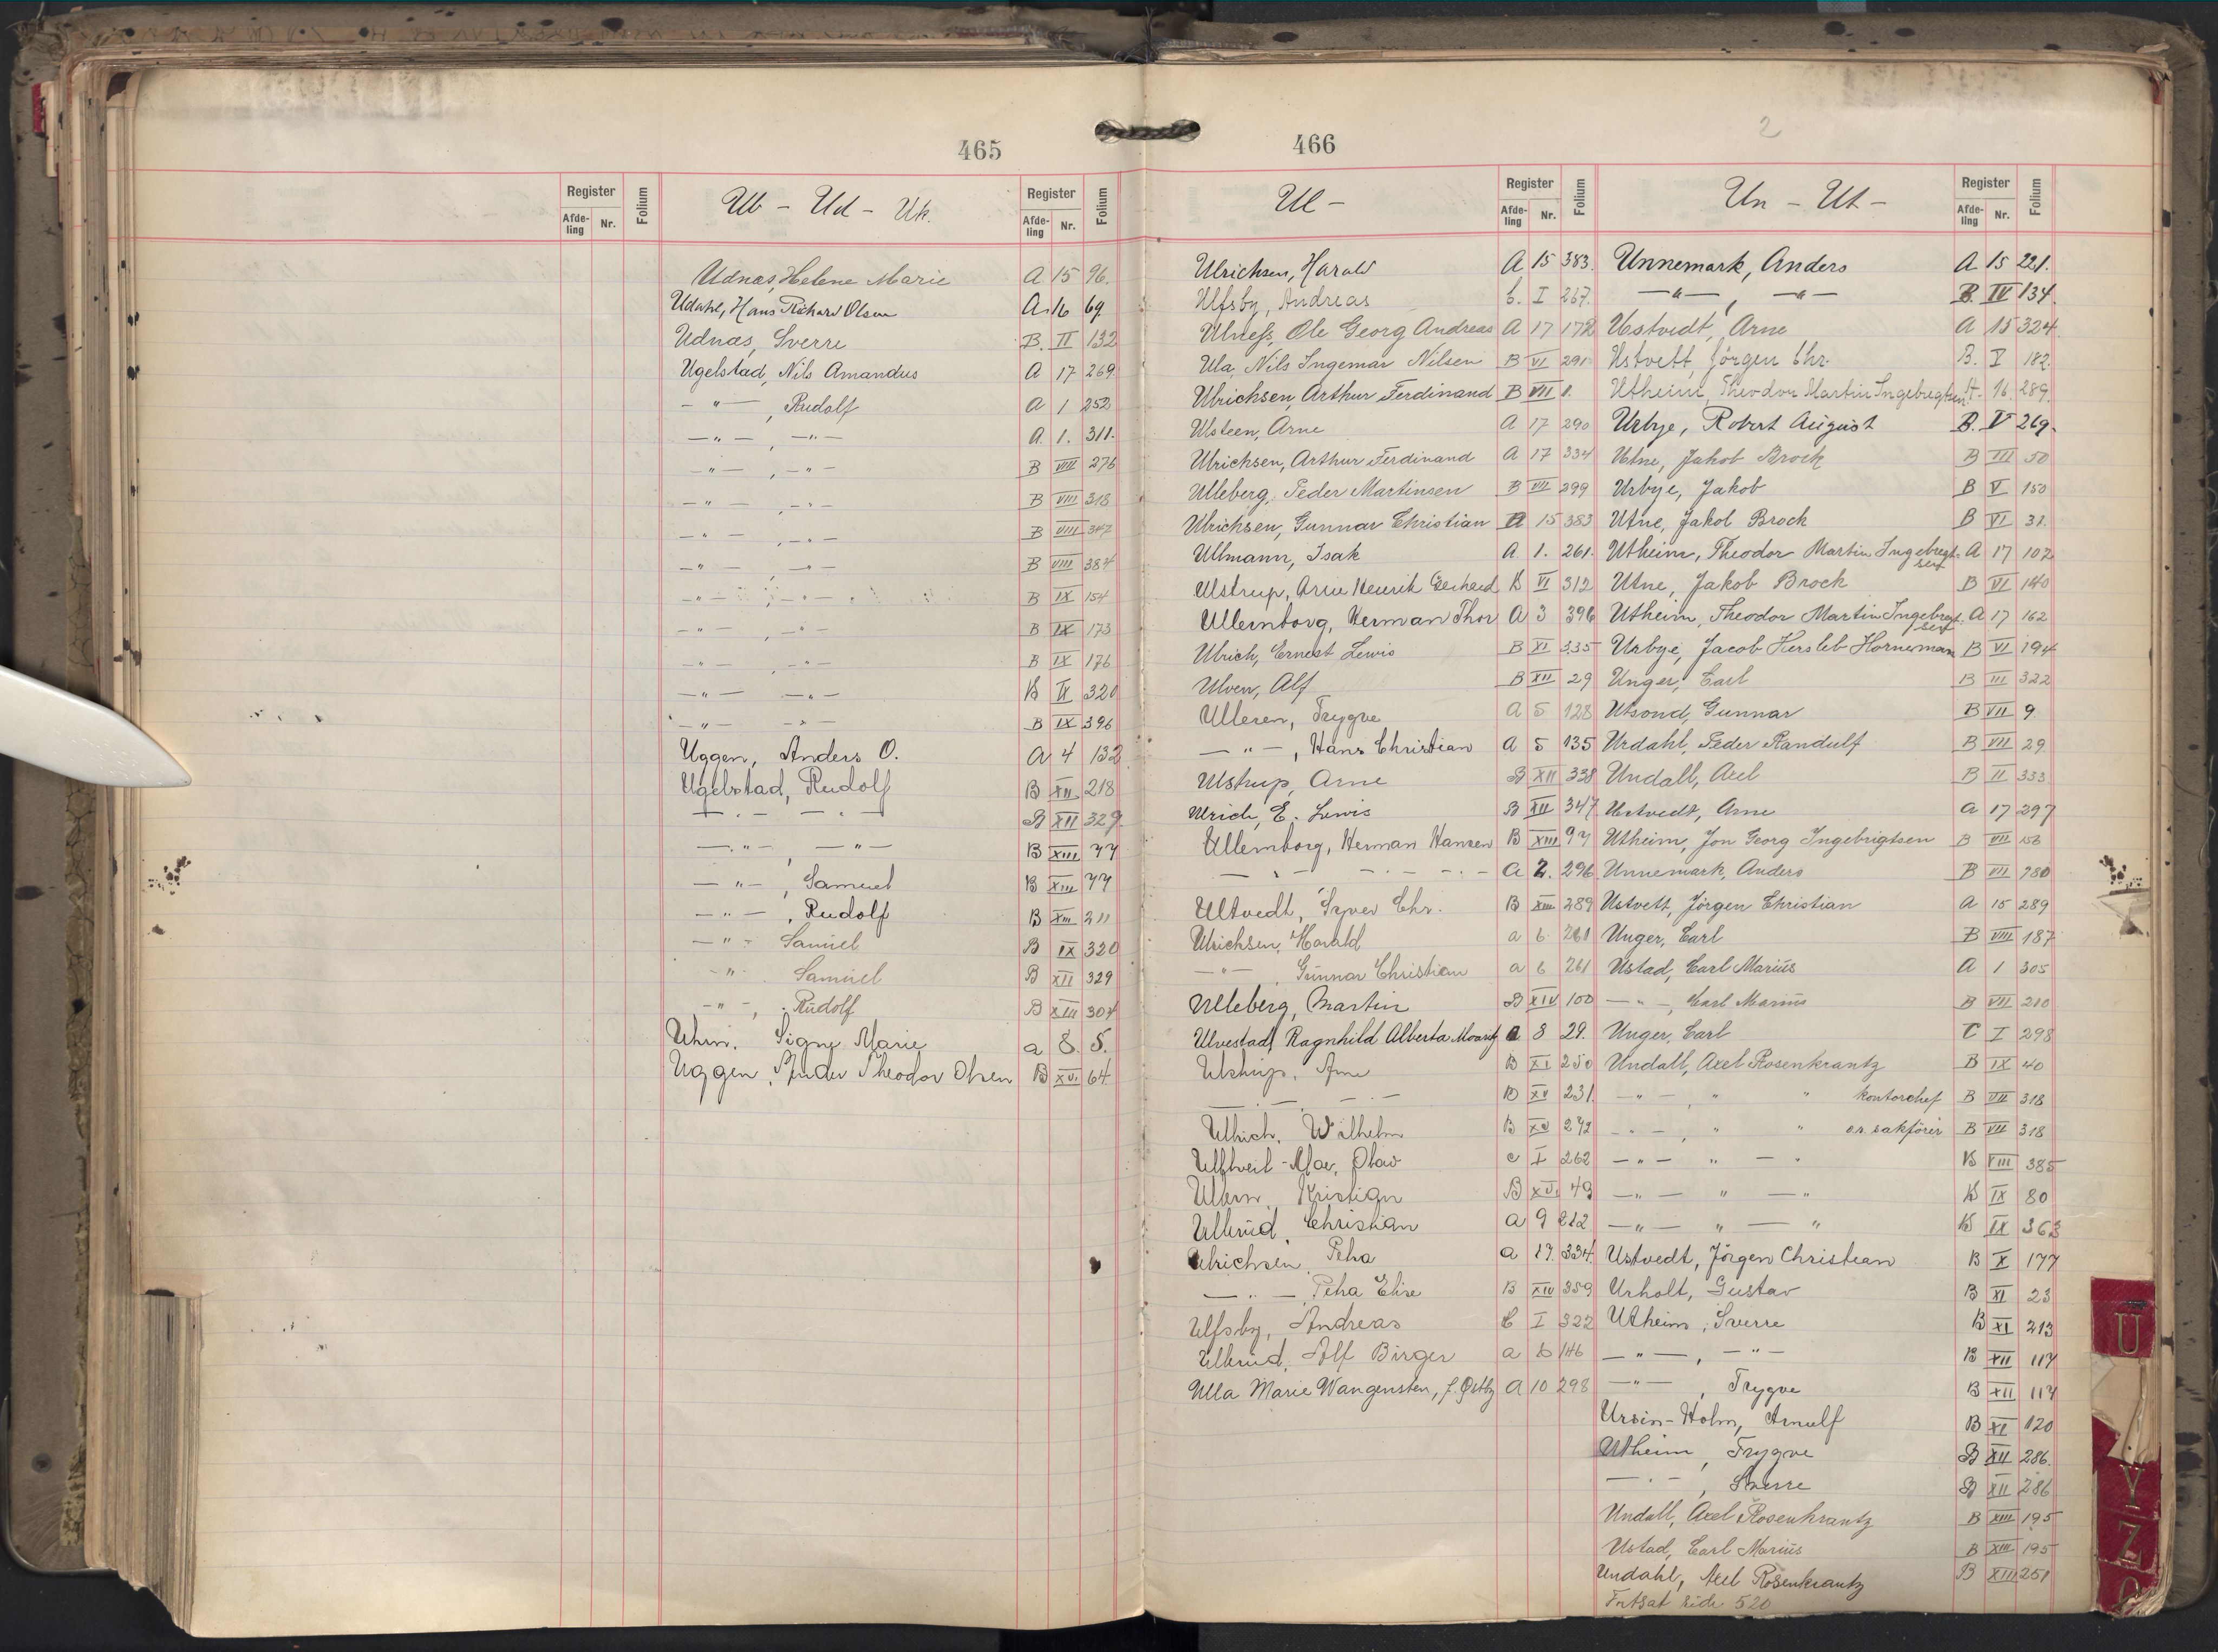 465
Register
Afde-
ling
Nr.
Folium
Ub - Ud - Uk.
Register
Afde-
ling
Nr.
Folium
Udnæs, Helene Marie A 15 96.
Udahl, Hans Richard Olsen A. 16 69
Udnæs, Sverre B. II 132
Ugelstad, Nils Amandus A 17 269
- " - , Rudolf A 1 252
- " - , - " - A. 1. 311.
- " - , - " - B VIII 276
- " - , - " - B VIII 318
- " - , - " - B VIII 347
- " - , - " - B VIII 384
- " - , - " - B IX 154
- " - , - " - B IX 173
- " - , - " - B IX 176
- " - - " - B IX 320
- " - - " - B IX 396
Uggen, Anders O. A 4 132
Ugelstad, Rudolf B XII 218
- " - - " - B XII 329
- " - , - " - B XIII 77
- " - , Samuel B XIII 77
- " - , Rudolf B XIII 211
- " - Samuel B IX 320
- " - Samuel B XII 329
- " - , Rudolf B XIII 304
Uhm. Signe Marie a 8. 5.
Uggen, Theodor Olsen B XVI 64
466
2
Ul -
Register
Afde-
ling
Nr.
Folium
Ulrichsen, Harald A 15 383.
Ulfsby, Andreas C. I 267.
Ulness, Ole Georg Andreas A 17 172
Ula, Nils Ingemar Nilsen B VI 291
Ulrichsen, Arthur Ferdinand B VII 1.
Ulsteen, Arne A 17 290
Ulrichsen, Arthur Ferdinand A 17 334
Ulleberg, Peder Martinsen B VII 299
Ulrichsen, Gunnar Christian A 15 383
Ullmann, Isak A 1. 261.
Ulstrup, Arne Henrik Gerhard B VI 312
Ullernborg, Herman Thor A 3 396
Ulrich, Ernest Lewis B XI 335
Ulven, Alf B XII 29
Ulleren, Trygve A 5 128
- " - , Hans Christian A 5 135
Ulstrup, Arne B XII 338
Ulrich, E. Lewis B XII 347
Ullernborg, Herman Hansen B XIII 97
- " - - " - - " - A 2. 296
Ultvedt, Syver Chr. B XIII 289
Ulrichsen, Harald a 6 261
- " - , Gunnar Christian a 6 261
Ulleberg, Martin B XIV 100
Ulvestad, Ragnhild Alberta a 8 29.
Ulstrup, Arne B XI 250
- " - - " - B XV 231
Ullrich, Wilhelm B XV 272
Olav c I 262
Kristian B XVI 49
Ullerud, Christian a 9 212
Ulrichsen, Petra a 17. 334.
- " - , Petra Elise B XIV 359
Ulfsby, Andreas C I 322
Ullerud, Alf Birger a 6 146
Ulla Marie Wangensten, f. Østby A 10 298
Un - Ut -
Register
Afde-
ling
Nr.
Folium
Unnemark, Anders A 15 221.
- " - , - " - B. IV 134
Ustvedt, Arne A 15 324
Ustvett, Jörgen Chr. B. V 182.
Utheim, Theodor Martin Ingebregtsen A. 16. 289.
Urbye, Robert August B. V 269.
Utne, Jakob Brock B III 50
Urbye, Jakob B V 150
Utne, Jakob Brock B VI 31.
Utheim, Theodor Martin Ingebregt-
sen A 17 102
Utne, Jakob Brock B VI 140
Utheim, Theodor Martin Ingebregt-
sen A 17 162
Urbye, Jacob Hersleb Horneman B VI 194
Unger, Carl B III 322
Utsond, Gunnar B VII 9
Urdahl, Peder Randulf B VII 29
Undall, Axel B II 333
Ustvedt, Arne A 17 297
Utheim, Jon Georg Ingebrigtsen B VII 156
Unnemark, Anders B VII 280
Ustvett, Jörgen Christian A 15 289
Unger, Carl B VIII 187
Ustad, Carl Marius A 1 305
- " - , Carl Marius B VII 210
Unger, Carl C I 298
Undall, Axel Rosenkrantz B IX 40
- " - , " " kontorchef B VII 318
- " - , " " o.r. sakförer B VII 318
- " - " - " B VIII 385
- " - " - " B IX 80
- " - " - " B IX 363
Ustvedt, Jörgen Christian B X 177
Urholt, Gustav B XI 23
Utheim, Sverre B XI 213
- " - , - " - B XII 117
- " - , Trygve B XII 117
Ursin-Holm, Arnulf B XI 120
Utheim, Trygve B XII 286.
- " - , Sverre B XII 286
Undall, Axel Rosenkrantz B XIII 195
Ustad, Carl Marius B XIII 195
Undahl, Axel Rosenkrantz B XIII 251
Fortsat side 520
U
Y
Z